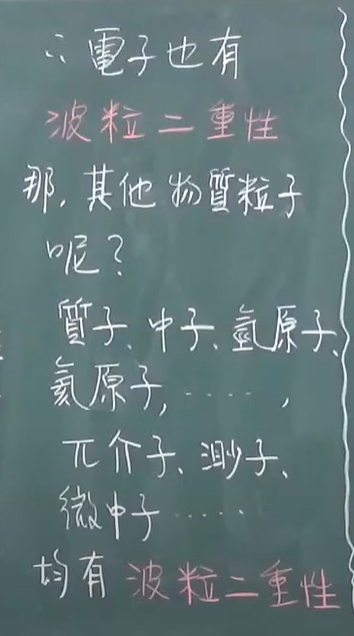 ∴電子也有
波粒二重性
那,其他物質粒子
呢?
質子、中子、氫原子、
氦原子,……,
π介子、渺子、
微中子……
均有波粒二重性